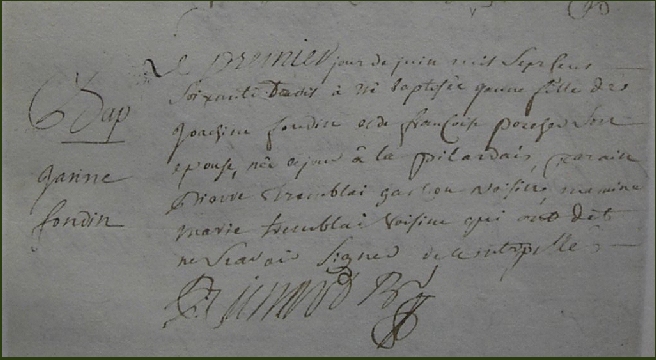 Bap
janne
fondin
Le premier jour de juin mil sept cens
soixante à été baptisée jeanne fille de
joachim fondin et de françoise porcher son
epouse, née ce jour à la pilardais, parain
pierre tremblai garcon voisin, maraine
marie tremblai voisine qui ont dit
ne scavoir signer de ce interpellés